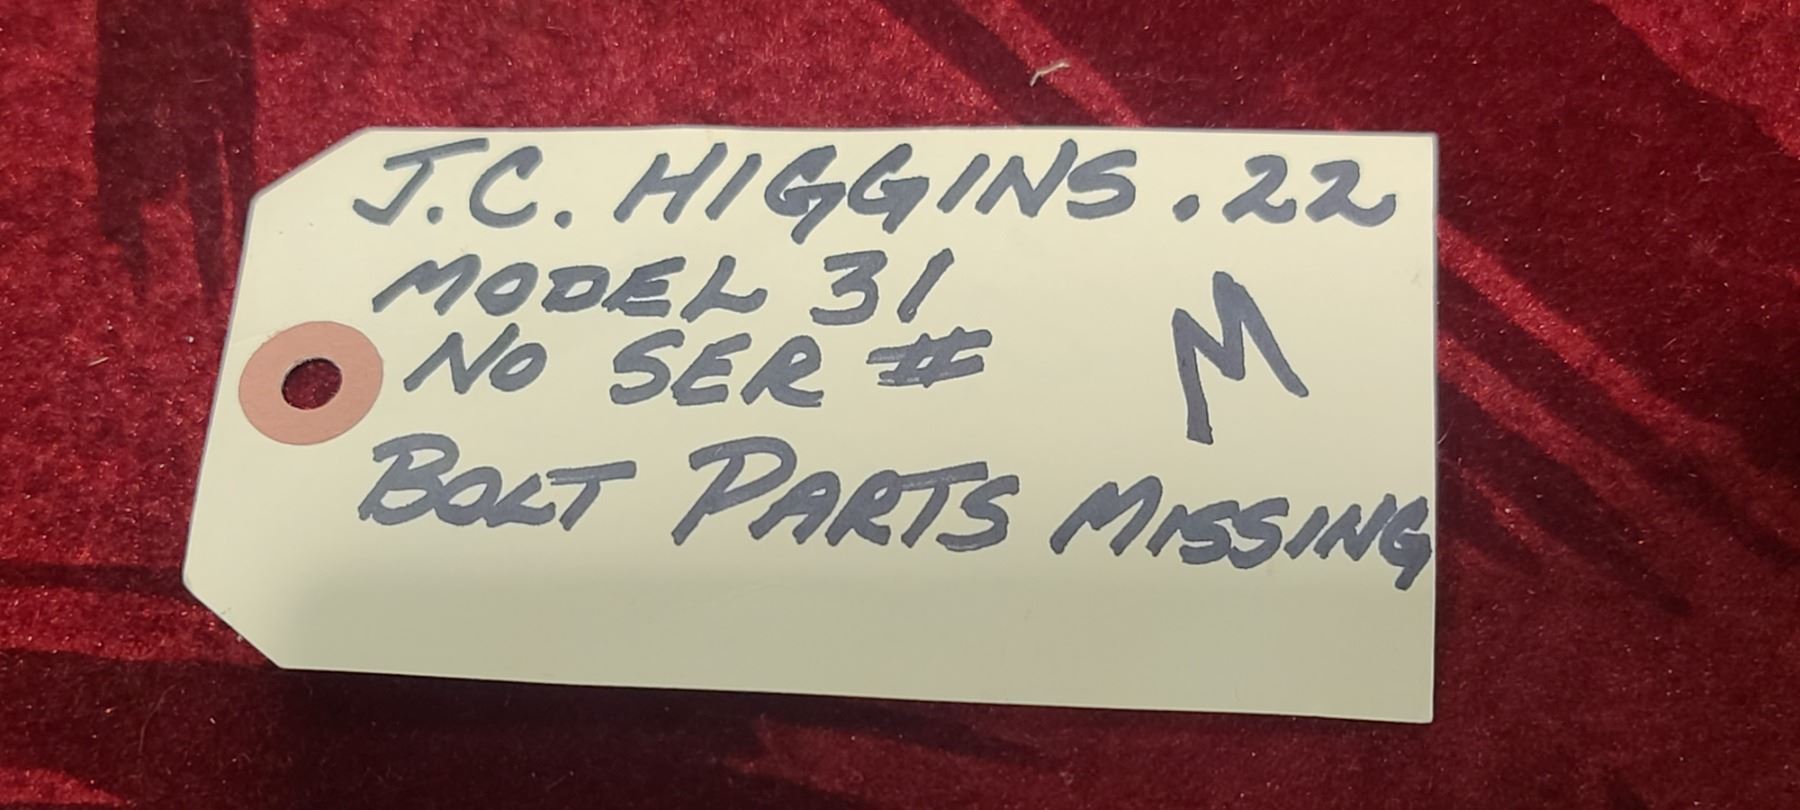 J.C. HIGGINS .22
MODEL 31
M
NO SER #
BOLT PARTS MISSING